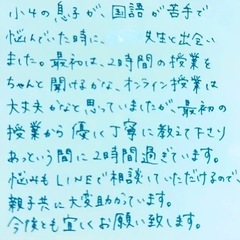 小4の息子が、国語が苦手で
悩んでいた時に、 先生と出会い
ました。最初は、2時間の授業を
ちゃんと聞けるかな、オンライン授業は
大丈夫かなと思っていましたが、最初の
授業から優しく丁寧に教えて下さり
あっという間に2時間過ぎています。
悩みもLINEで相談していただけるので、
親子共に大変助かっています。
今後とも宜しくお願い致します。